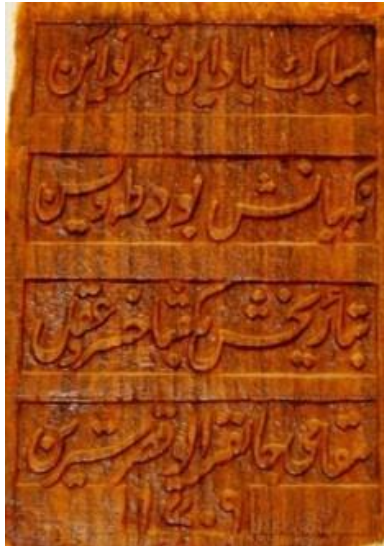 مبارک باد این قصر نو آئین
نگهبانش بود طه و یسن
بتاریخش بگفتا خسرو عقل
مقامی جانفزای و قصر شیرین
۱۳۰۹